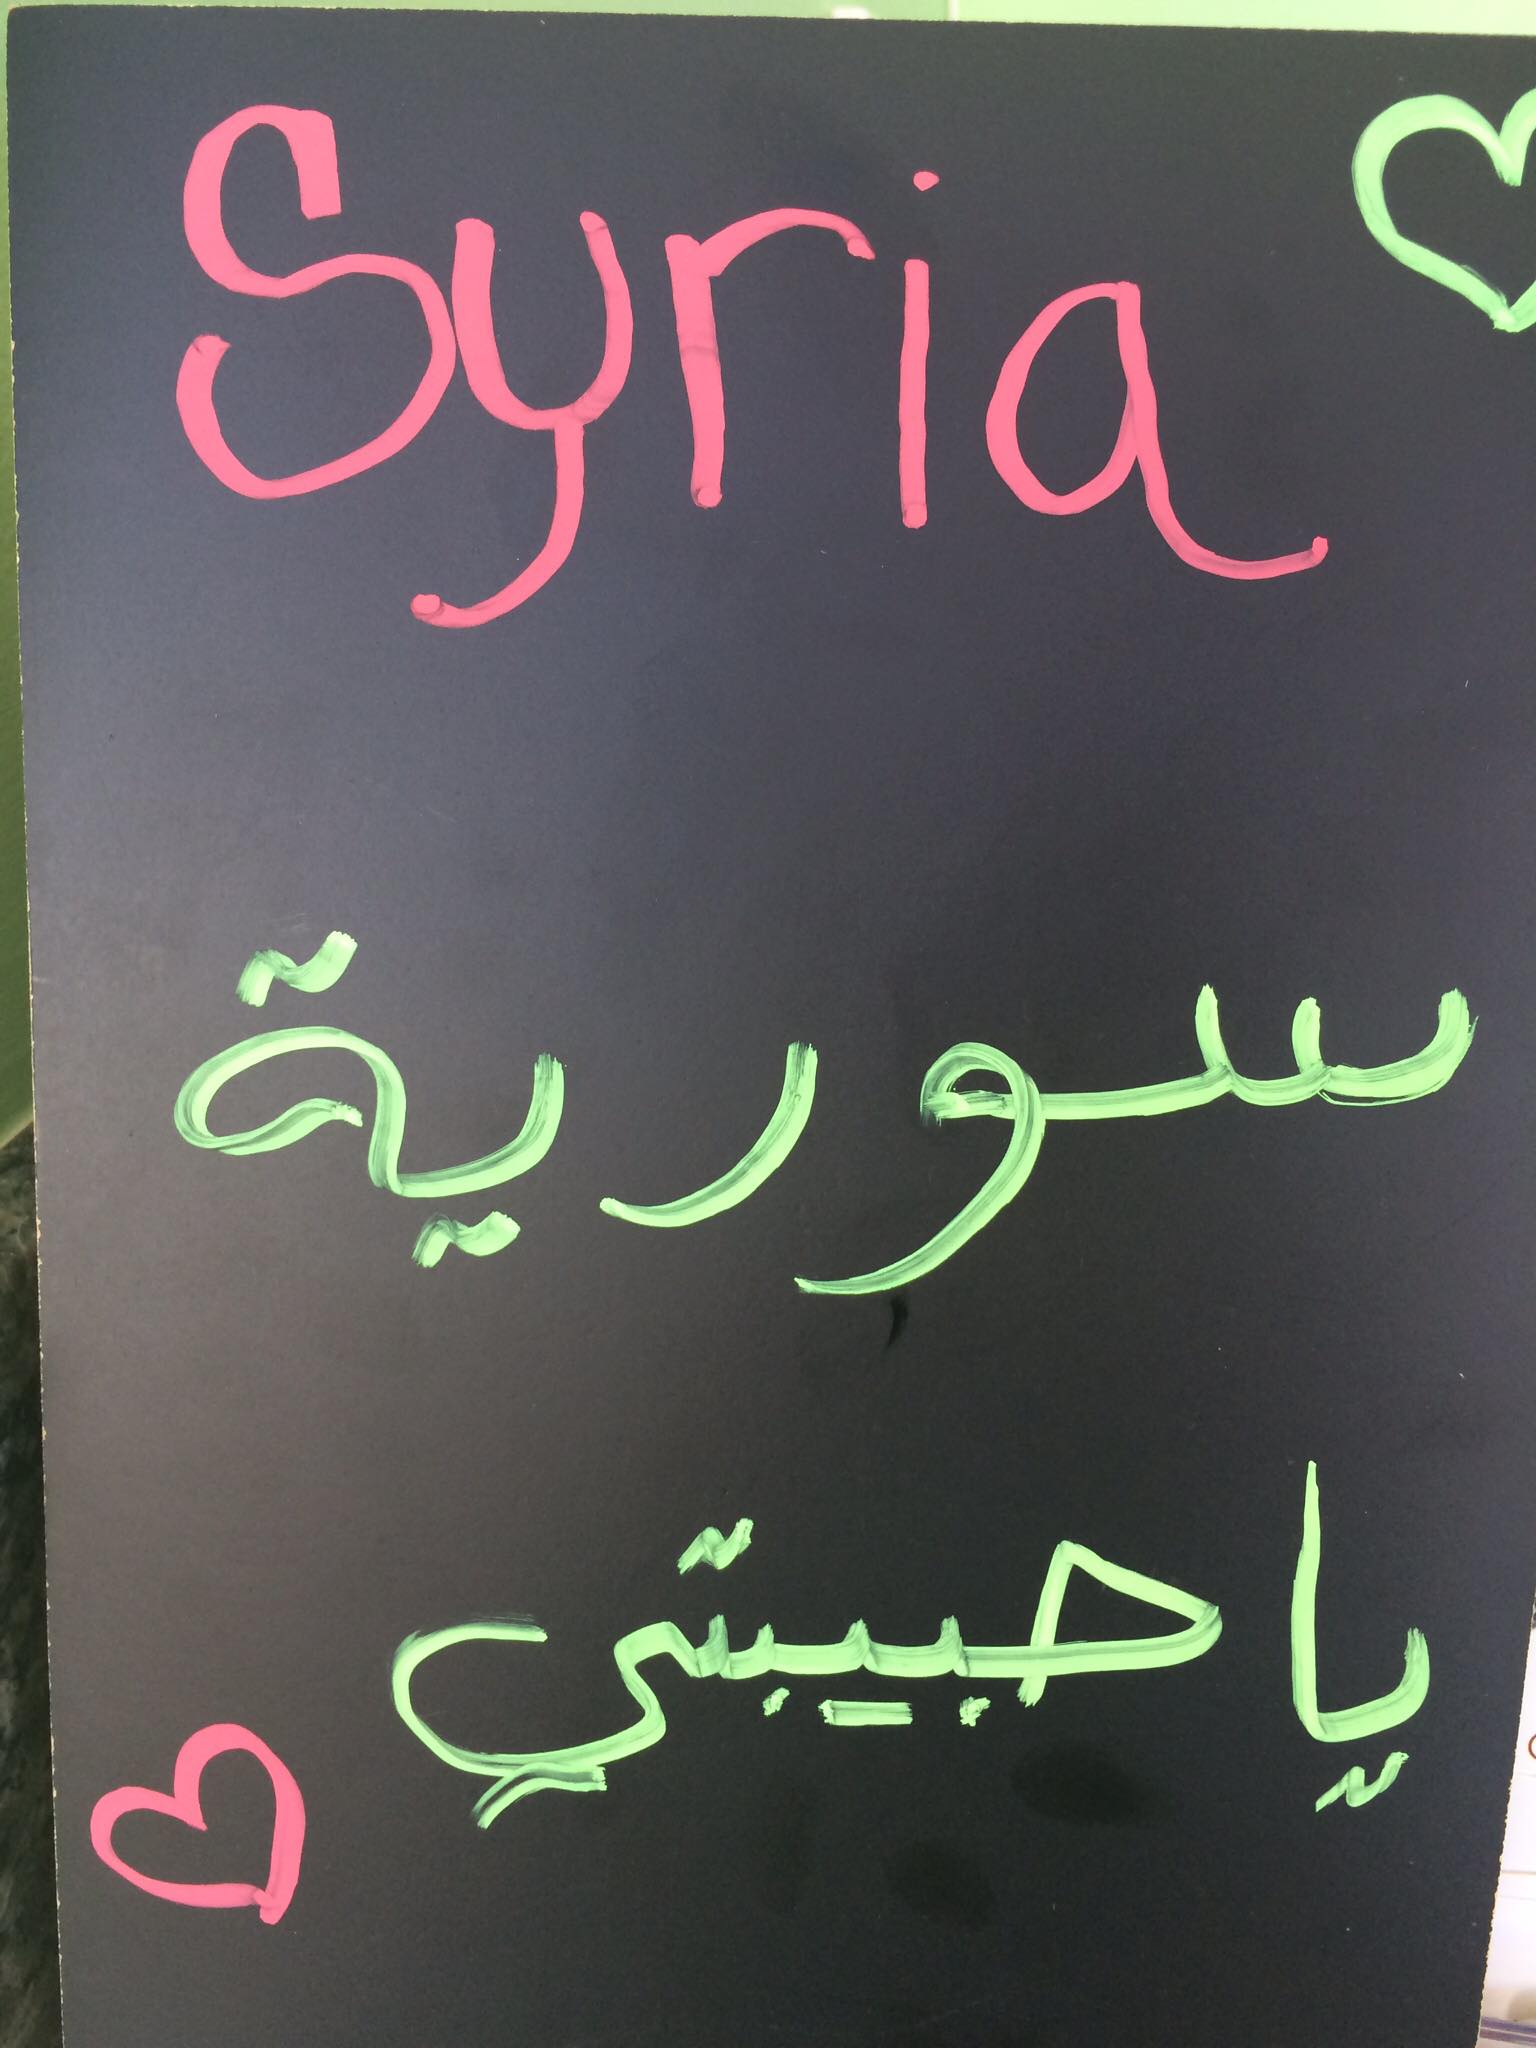 Syria
سورية
يا حبيبتي